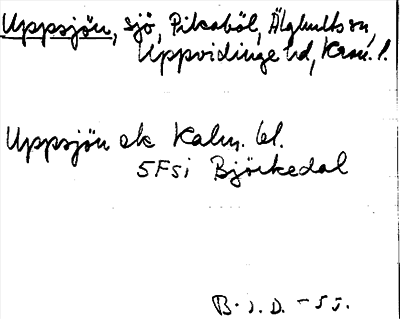 Uppsjön, sjö, Pikaböl, Älghults sn,
Uppvidinge hd, Kron. l.
Uppsjön ek Kalm. bl.
5F5i Björkedal
B. J. D. -55.